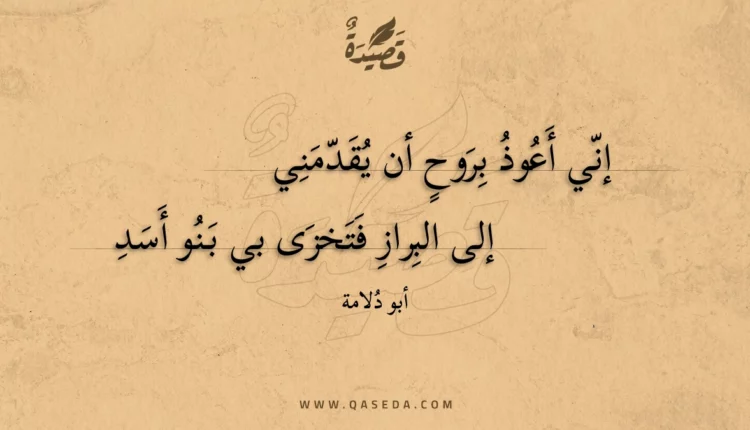 قَصِيدَةٌ
إنّي أَعُوذُ بِرَوحٍ أن يُقَدّمَنِي
إلى البِرازِ فَتَخزَى بي بَنُو أَسَدِ
أبو دُلامة
WWW.QASEDA.COM